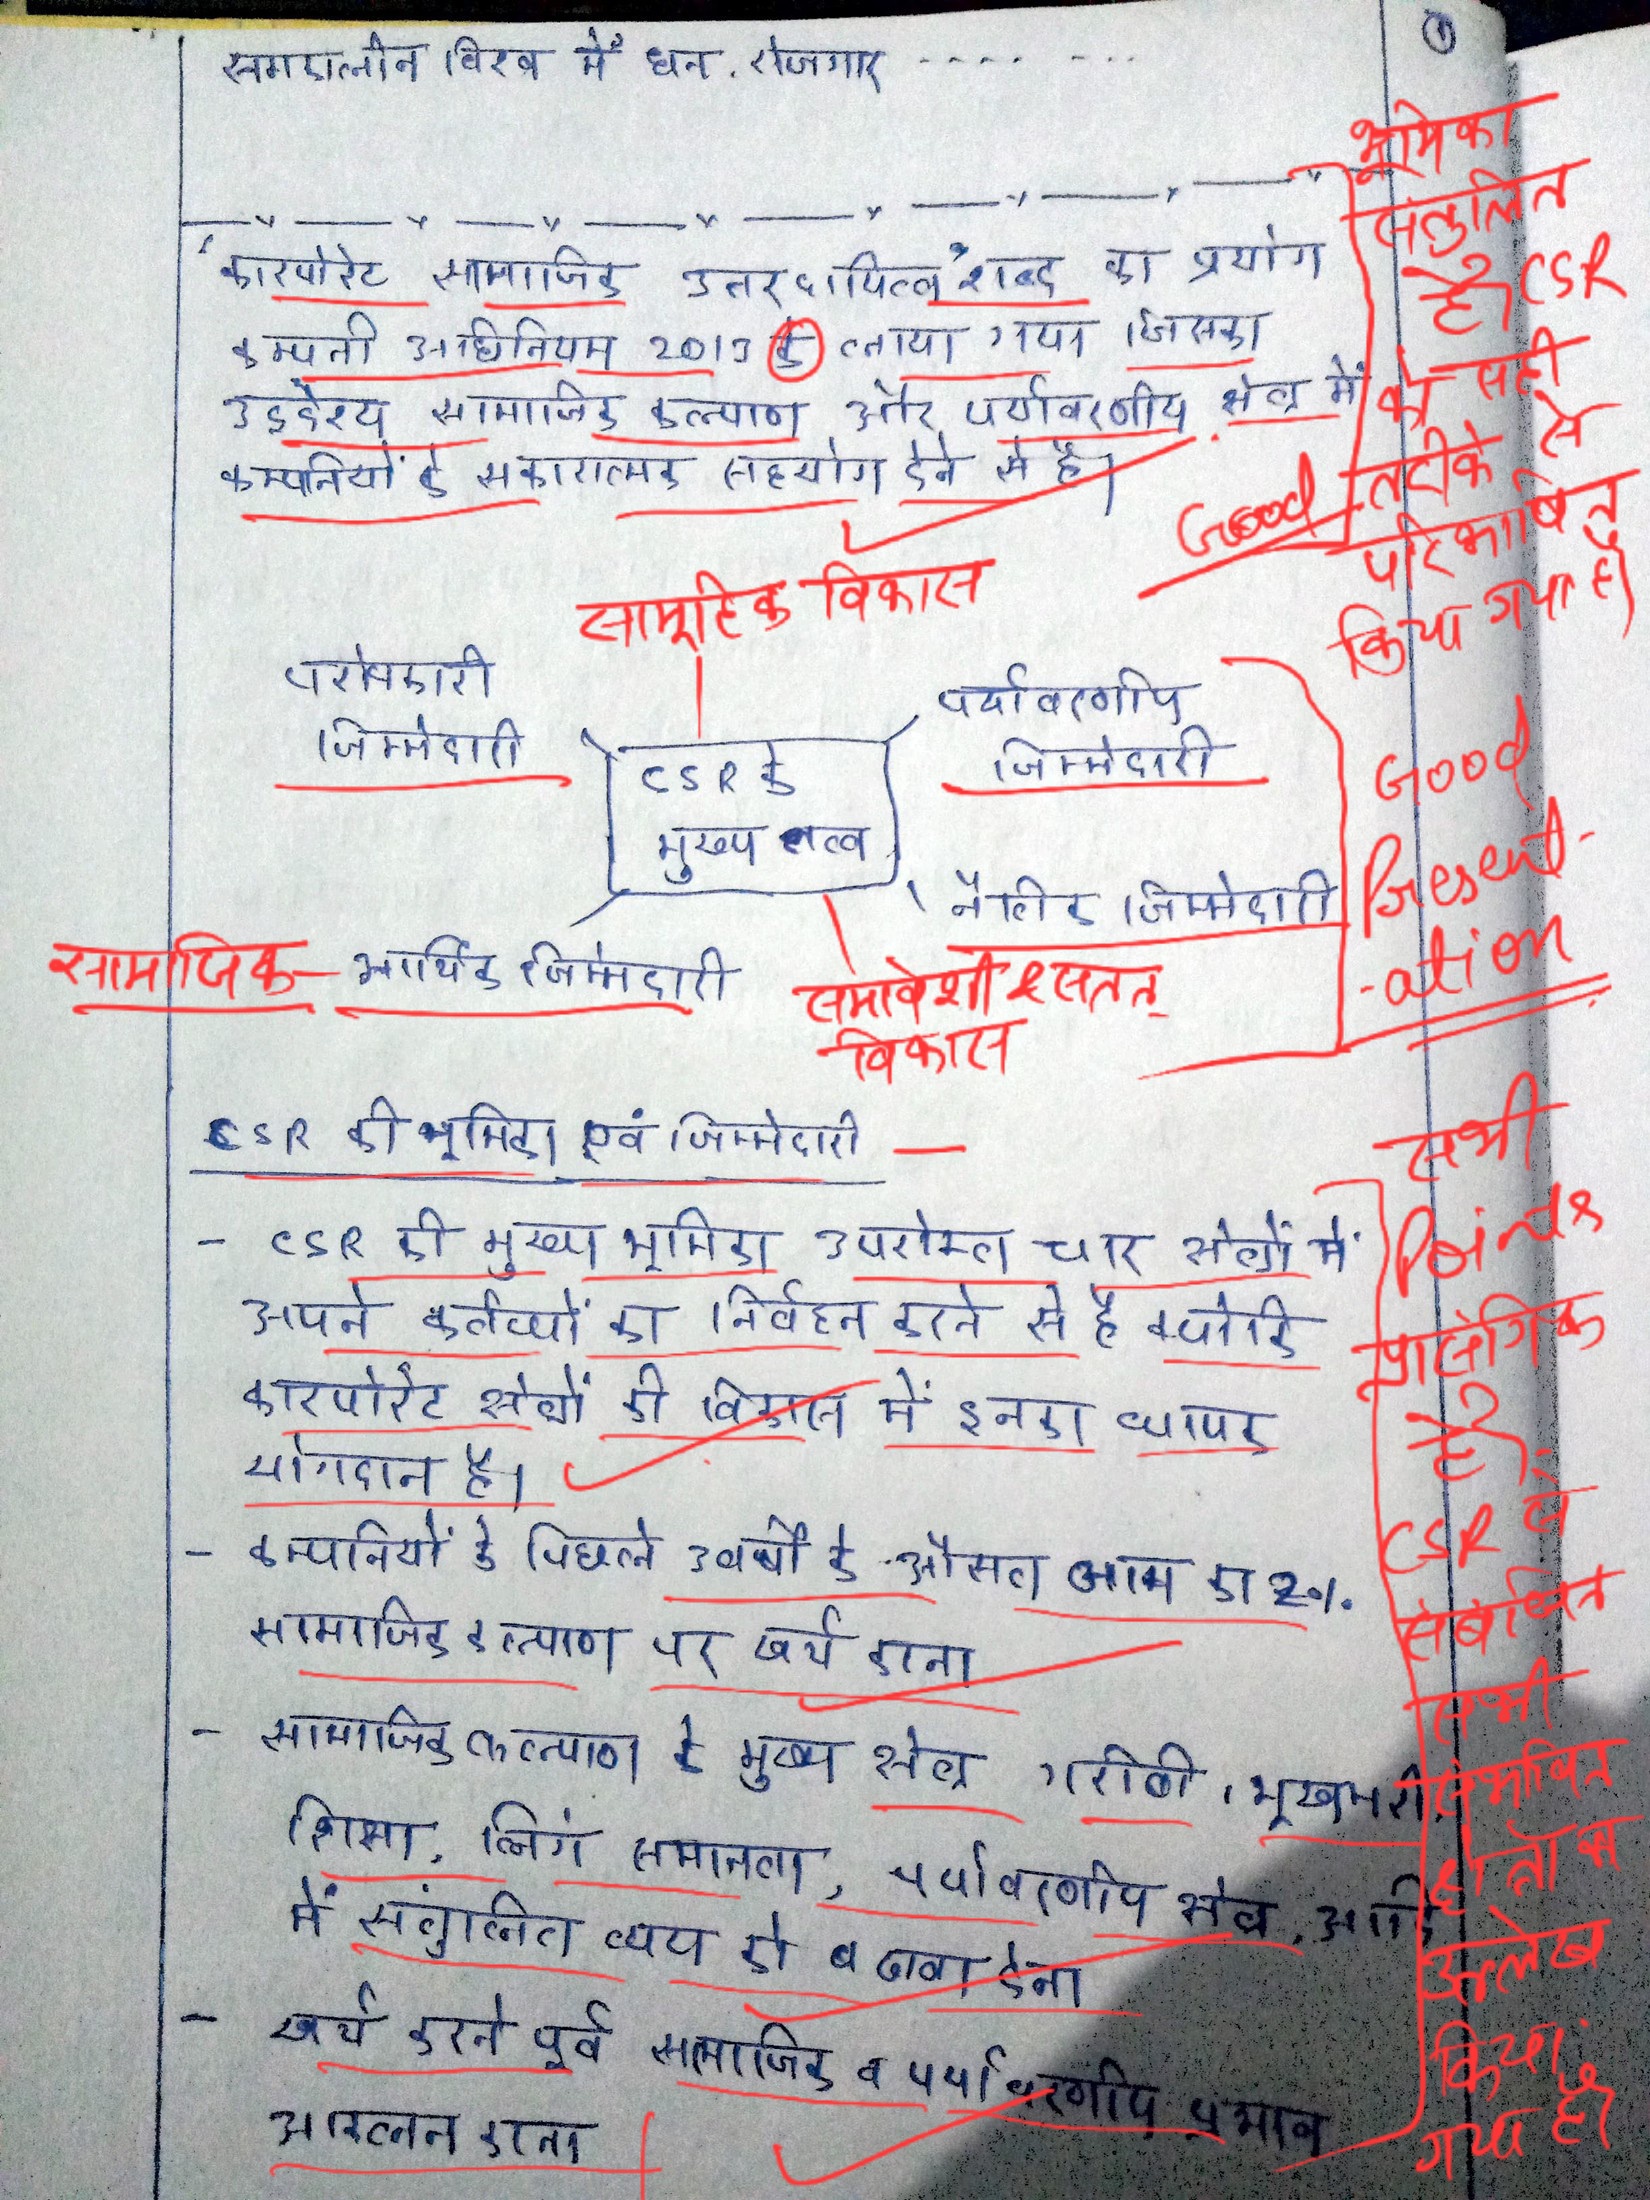 समकालीन विश्व में धन, रोजगार ---- ---
①
—"— —"— —"— —"— —"— —"— —"—
'कारपोरेट सामाजिक उत्तरदायित्व' शब्द का प्रयोग
कम्पनी अधिनियम 2013 के लाया गया जिसका
उद्देश्य सामाजिक कल्याण और पर्यावरणीय क्षेत्र में
कम्पनियों के सकारात्मक सहयोग देने से है।
भूमिका
संतुलित
है। CSR
को सही
तरीके से
परिभाषित
किया गया है।
Good
सामूहिक विकास
परोपकारी
जिम्मेदारी
पर्यावरणीय
जिम्मेदारी
CSR के
मुख्य तत्व
नैतिक जिम्मेदारी
सामाजिक- आर्थिक जिम्मेदारी
समावेशी & सतत्
विकास
Good
Present-
-ation
CSR की भूमिका एवं जिम्मेदारी —
- CSR की मुख्य भूमिका उपरोक्त चार क्षेत्रों में
अपने कर्तव्यों का निर्वहन करने से है क्योंकि
कारपोरेट क्षेत्रों की विकास में इनका व्यापक
योगदान है।
- कम्पनियों के पिछले 3 वर्षों के औसत आय का 2%
सामाजिक कल्याण पर खर्च करना
- सामाजिक कल्याण के मुख्य क्षेत्र गरीबी, भूखमरी,
शिक्षा, लिंग समानता, पर्यावरणीय क्षेत्र, आदि
में संतुलित व्यय को बढावा देना
- खर्च करने पूर्व सामाजिक व पर्यावरणीय प्रभाव
आकलन करना
सभी
Points
प्रासंगिक
है।
CSR से
संबंधित
सभी
संभावित
क्षेत्रों का
उल्लेख
किया
गया है।